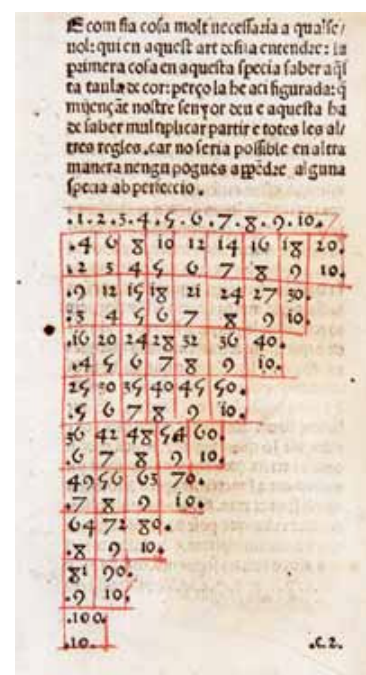 E com sia cosa molt necessaria a qualse/
uol: qui en aquest art desija entendre: la
primera cosa en aquesta specia saber aqſ
ta taula de cor: perço la he aci figurada: q̃
mijençãt nostre senyor deu e aquesta ha
de saber multiplicar partir e totes les al/
tres regles .car no seria possible en altra
manera nengu pogues apẽdre alguna
specia ab perfeccio.
.1.2.3.4.5.6.7.8.9.10.
.4 6 8 10 12 14 16 18 20.
.2 3 4 5 6 7 8 9 10.
.9 12 15 18 21 24 27 30.
.3 4 5 6 7 8 9 10.
.16 20 24 28 32 36 40.
.4 5 6 7 8 9 10.
25 30 35 40 45 50.
.5 6 7 8 9 10.
36 42 48 54 60.
.6 7 8 9 10.
49 56 63 70.
.7 8 9 10.
64 72 80.
.8 9 10.
81 90.
.9 10.
.100.
.10.
.c.2.